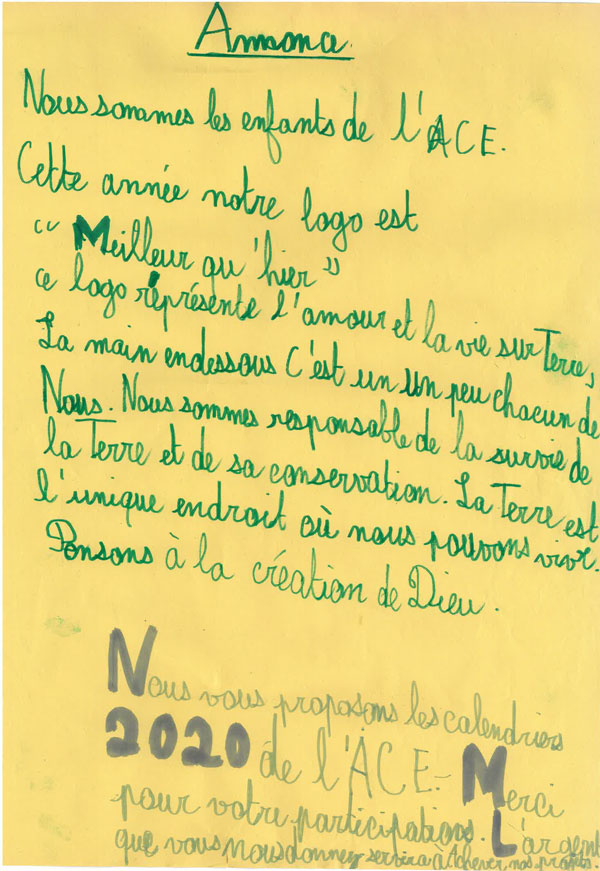 Annonce
Nous sommes les enfants de l'ACE.
Cette année notre logo est
" Meilleur qu'hier "
ce logo représente l'amour et la vie sur Terre,
La main endessous c'est un un peu chacun de
Nous. Nous sommes responsable de la survie de
la Terre et de sa conservation. La Terre est
l'unique endroit où nous pouvons vivre.
Pensons à la création de Dieu.
Nous vous proposons les calendriers
2020 de l'ACE.- Merci
pour votre participations. L'argent
que vous nous donnez servira à Achever nos projets.